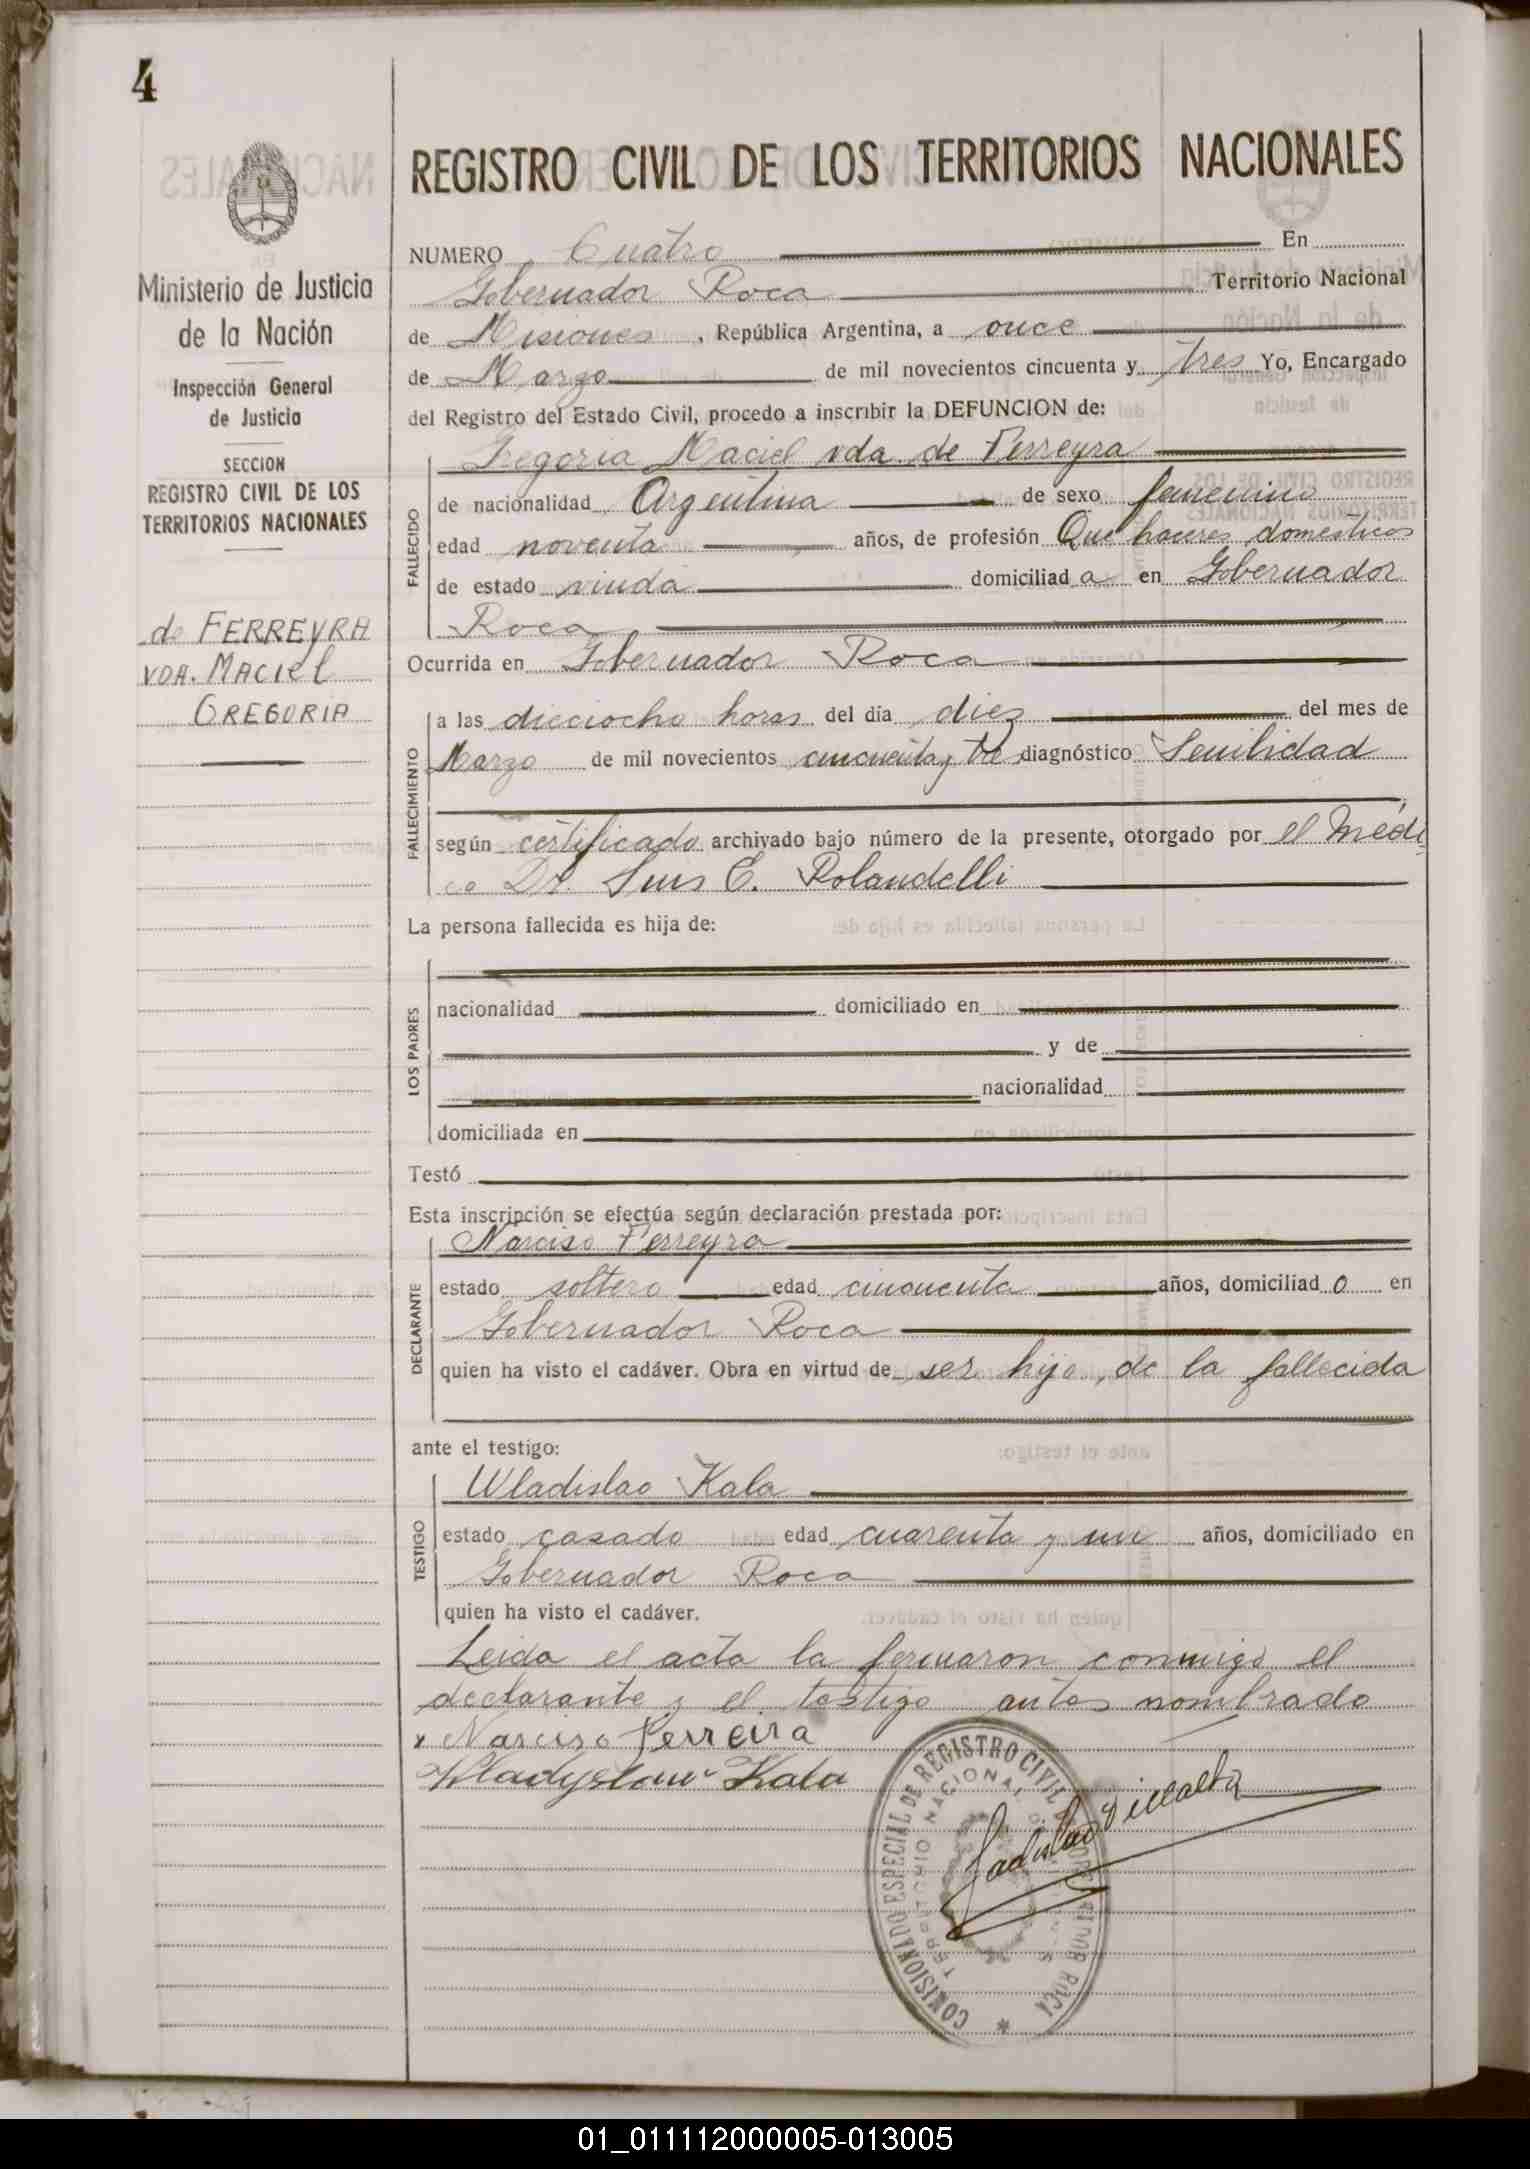 4
Ministerio de Justicia
de la Nación
Inspección General
de Justicia
SECCION
REGISTRO CIVIL DE LOS
TERRITORIOS NACIONALES
de FERREYRA
VDA. MACIEL
GREGORIA
REGISTRO CIVIL DE LOS TERRITORIOS NACIONALES
NUMERO Cuatro En
Gobernador Roca Territorio Nacional
de Misiones, República Argentina, a once
de Marzo de mil novecientos cincuenta y tres Yo, Encargado
del Registro del Estado Civil, procedo a inscribir la DEFUNCION de:
FALLECIDO
Gregoria Maciel vda. de Ferreyra
de nacionalidad Argentina de sexo femenino
edad noventa años, de profesión Que haceres domesticos
de estado viuda domiciliad a en Gobernador
Roca
Ocurrida en Gobernador Roca
FALLECIMIENTO
a las dieciocho horas del día diez del mes de
Marzo de mil novecientos cincuenta y tres diagnóstico Senilidad
según certificado archivado bajo número de la presente, otorgado por el Médi
co Dr. Luis E. Rolandelli
La persona fallecida es hija de:
LOS PADRES
nacionalidad domiciliado en
y de
nacionalidad
domiciliada en
Testó
Esta inscripción se efectúa según declaración prestada por:
DECLARANTE
Narciso Ferreyra
estado soltero edad cincuenta años, domiciliad o en
Gobernador Roca
quien ha visto el cadáver. Obra en virtud de ser hijo de la fallecida
ante el testigo:
TESTIGO
Wladislao Kala
estado casado edad cuarenta y un años, domiciliado en
Gobernador Roca
quien ha visto el cadáver.
Leida el acta la firmaron conmigo el
declarante y el testigo antes nombrado
Narciso Ferreira
Wladyslaw Kala
COMISIONADO ESPECIAL DE REGISTRO CIVIL
TERRITORIO NACIONAL
ROCA
Ladislao Villalba
01_011112000005-013005